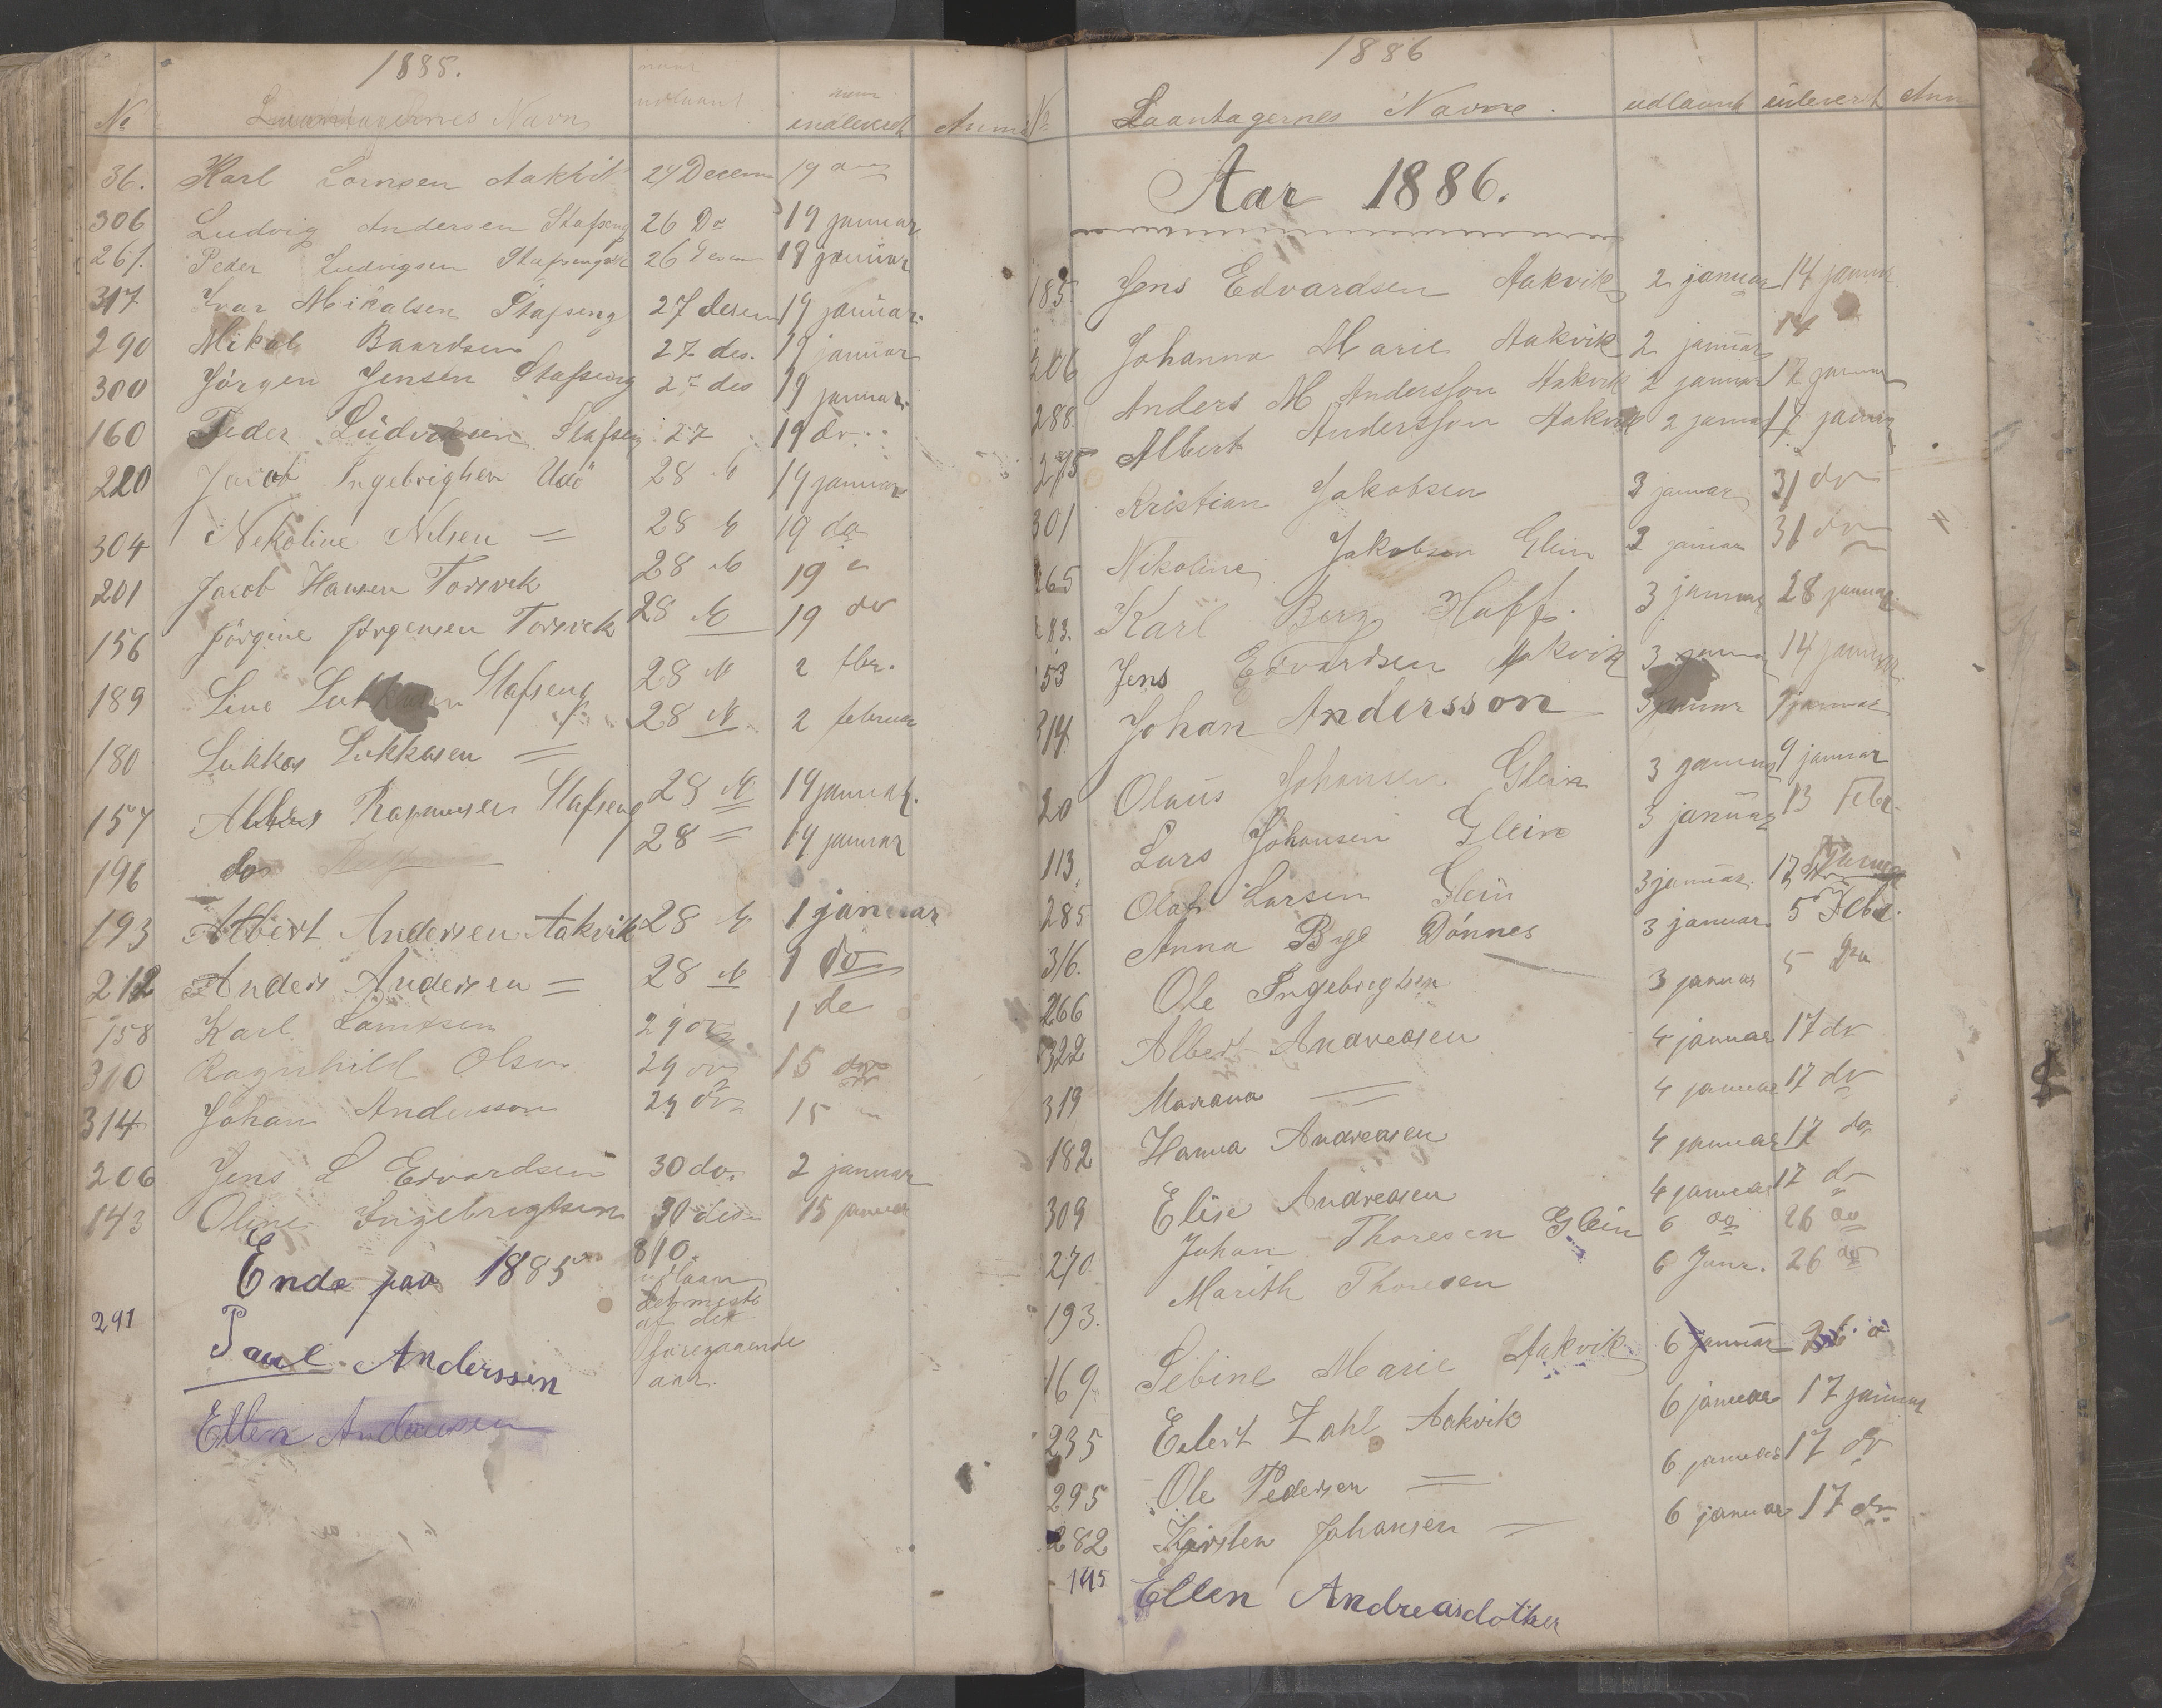 1885.
No Laantagernes Navn naar udlaant naar indleveret Anmæ
36. Karl Lorngen Aakvik 24 Decem 19
306 Ludvig Andersen Stafseng 26 Do 19 januar
261. Peder Ludvigsen Stafseng 26 19 januar
317 Ivar Mikalsen Stafseng 27 desem 19 januar.
290 Mikal Baardsen 27 des. 19 januar
300 Jörgen Jensen Stafseng 27 des 19 januar.
160 Peder Lüdviksen Stafseng 27 19 do.
220 Jacob Ingebrigtsen Udö 28 19 januar
304 Nekoline Nilsen = 28 19 do
201 Jacob Hansen Torsvek 28 19
156 Jörgine Jörgensen Torsvek 28 19 do
189 Line Stafseng 28 2 fbr.
180 Lukkas Lukkasen = 28 2 februar
157 Rasmusen Stafseng 28 19 januar.
196 do 28 = 19 januar
193 Albert Andersen Aakvik 28 1 januar
212 Anders Andersen = 28 1 do
158 Karl 29 do 1 de
310 Ragnhild Olsen 29 do 15 do
314 Johan Andersson 29 do 15
206 Jens L Edvardsen 30 do. 2 januar
143 Oline Ingebrigtsen 30 des 15 januar
Ende paa 1885 810.
udlaan
det meste
af det
foregaaende
aar.
291 Paul Anderssen
Ellen Andreasen
1886
No Laantagernes Navne. udlaant inlevert Anm
Aar 1886.
185 Jens Edvardsen Aakvik 2 januar 14 januar
206 Johanna Marie Aakvik 2 januar 14
288. Anders M Andersson Aakvik 2 januar 17 januar
275 Albert Andersson Aakvik 2 januar 17 januar
301 Kristian Jakobsen 3 januar 31 do
265 Nikoline Jakobsen Glein 3 januar 31 do
Karl Berg Hoff. 3 januar 28 januar
53 Jens Edvardsen Aakvik 3 januar 14 januar
314 Johan Andersson 3 januar 9 januar
20 Olaus Johansen Glein 3 januar 9 januar
113. Lars Johansen Glein 3 januar 13 Febr.
285 Olaf Larsen Glein 3 januar. 17
316. Anna Bye Dönnes 3 januar. 5 Febr.
266 Ole Ingebrigtsen 3 januar 5
322 Albert Andreasen 4 januar 17 do
319 Mariana = 4 januar 17 do
182 Hanna Andreasen 4 januar 17 do
309 Elise Andreasen 4 januar 17 do
270 Johan Thoresen Glein 6 do 26 do
193. Marith Thoresen 6 Janr. 26 do
169. Sebine Marie Aakvik 6 januar 26 d
235 Eilert Zahl Aakvik 6 januar 17 januar
295 Ole Pedersen = 6 januar 17 do
282 Kjersten Johansen 6 januar 17 do
145 Ellen Andreasdotter